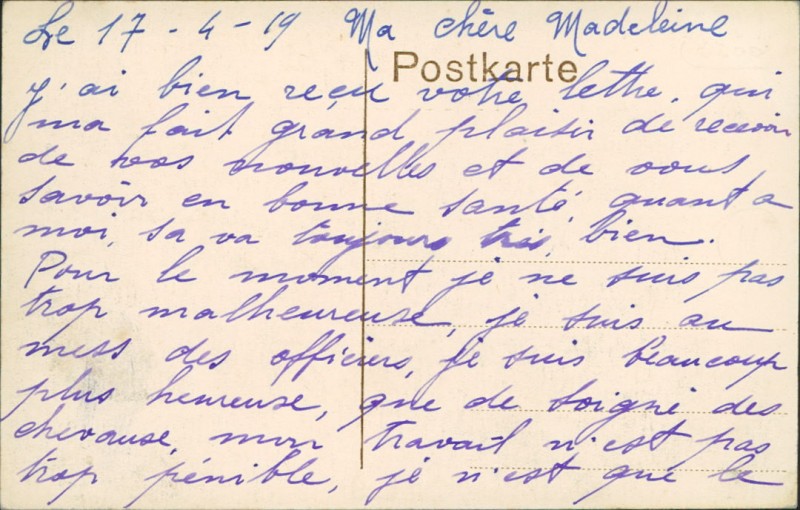 Le 17 - 4 - 19 Ma chère Madeleine
Postkarte
j'ai bien reçu votre lettre, qui
ma fait grand plaisir de recevoir
de vos nouvelles et de vous
savoir en bonne santé, quant a
moi, sa va toujours très bien.
Pour le moment je ne suis pas
trop malheureuse, je suis au
mess des officiers, je suis beaucoup
plus heureuse, que de soigné des
chevause, mon travail n'est pas
trop pénible, je n'est que le